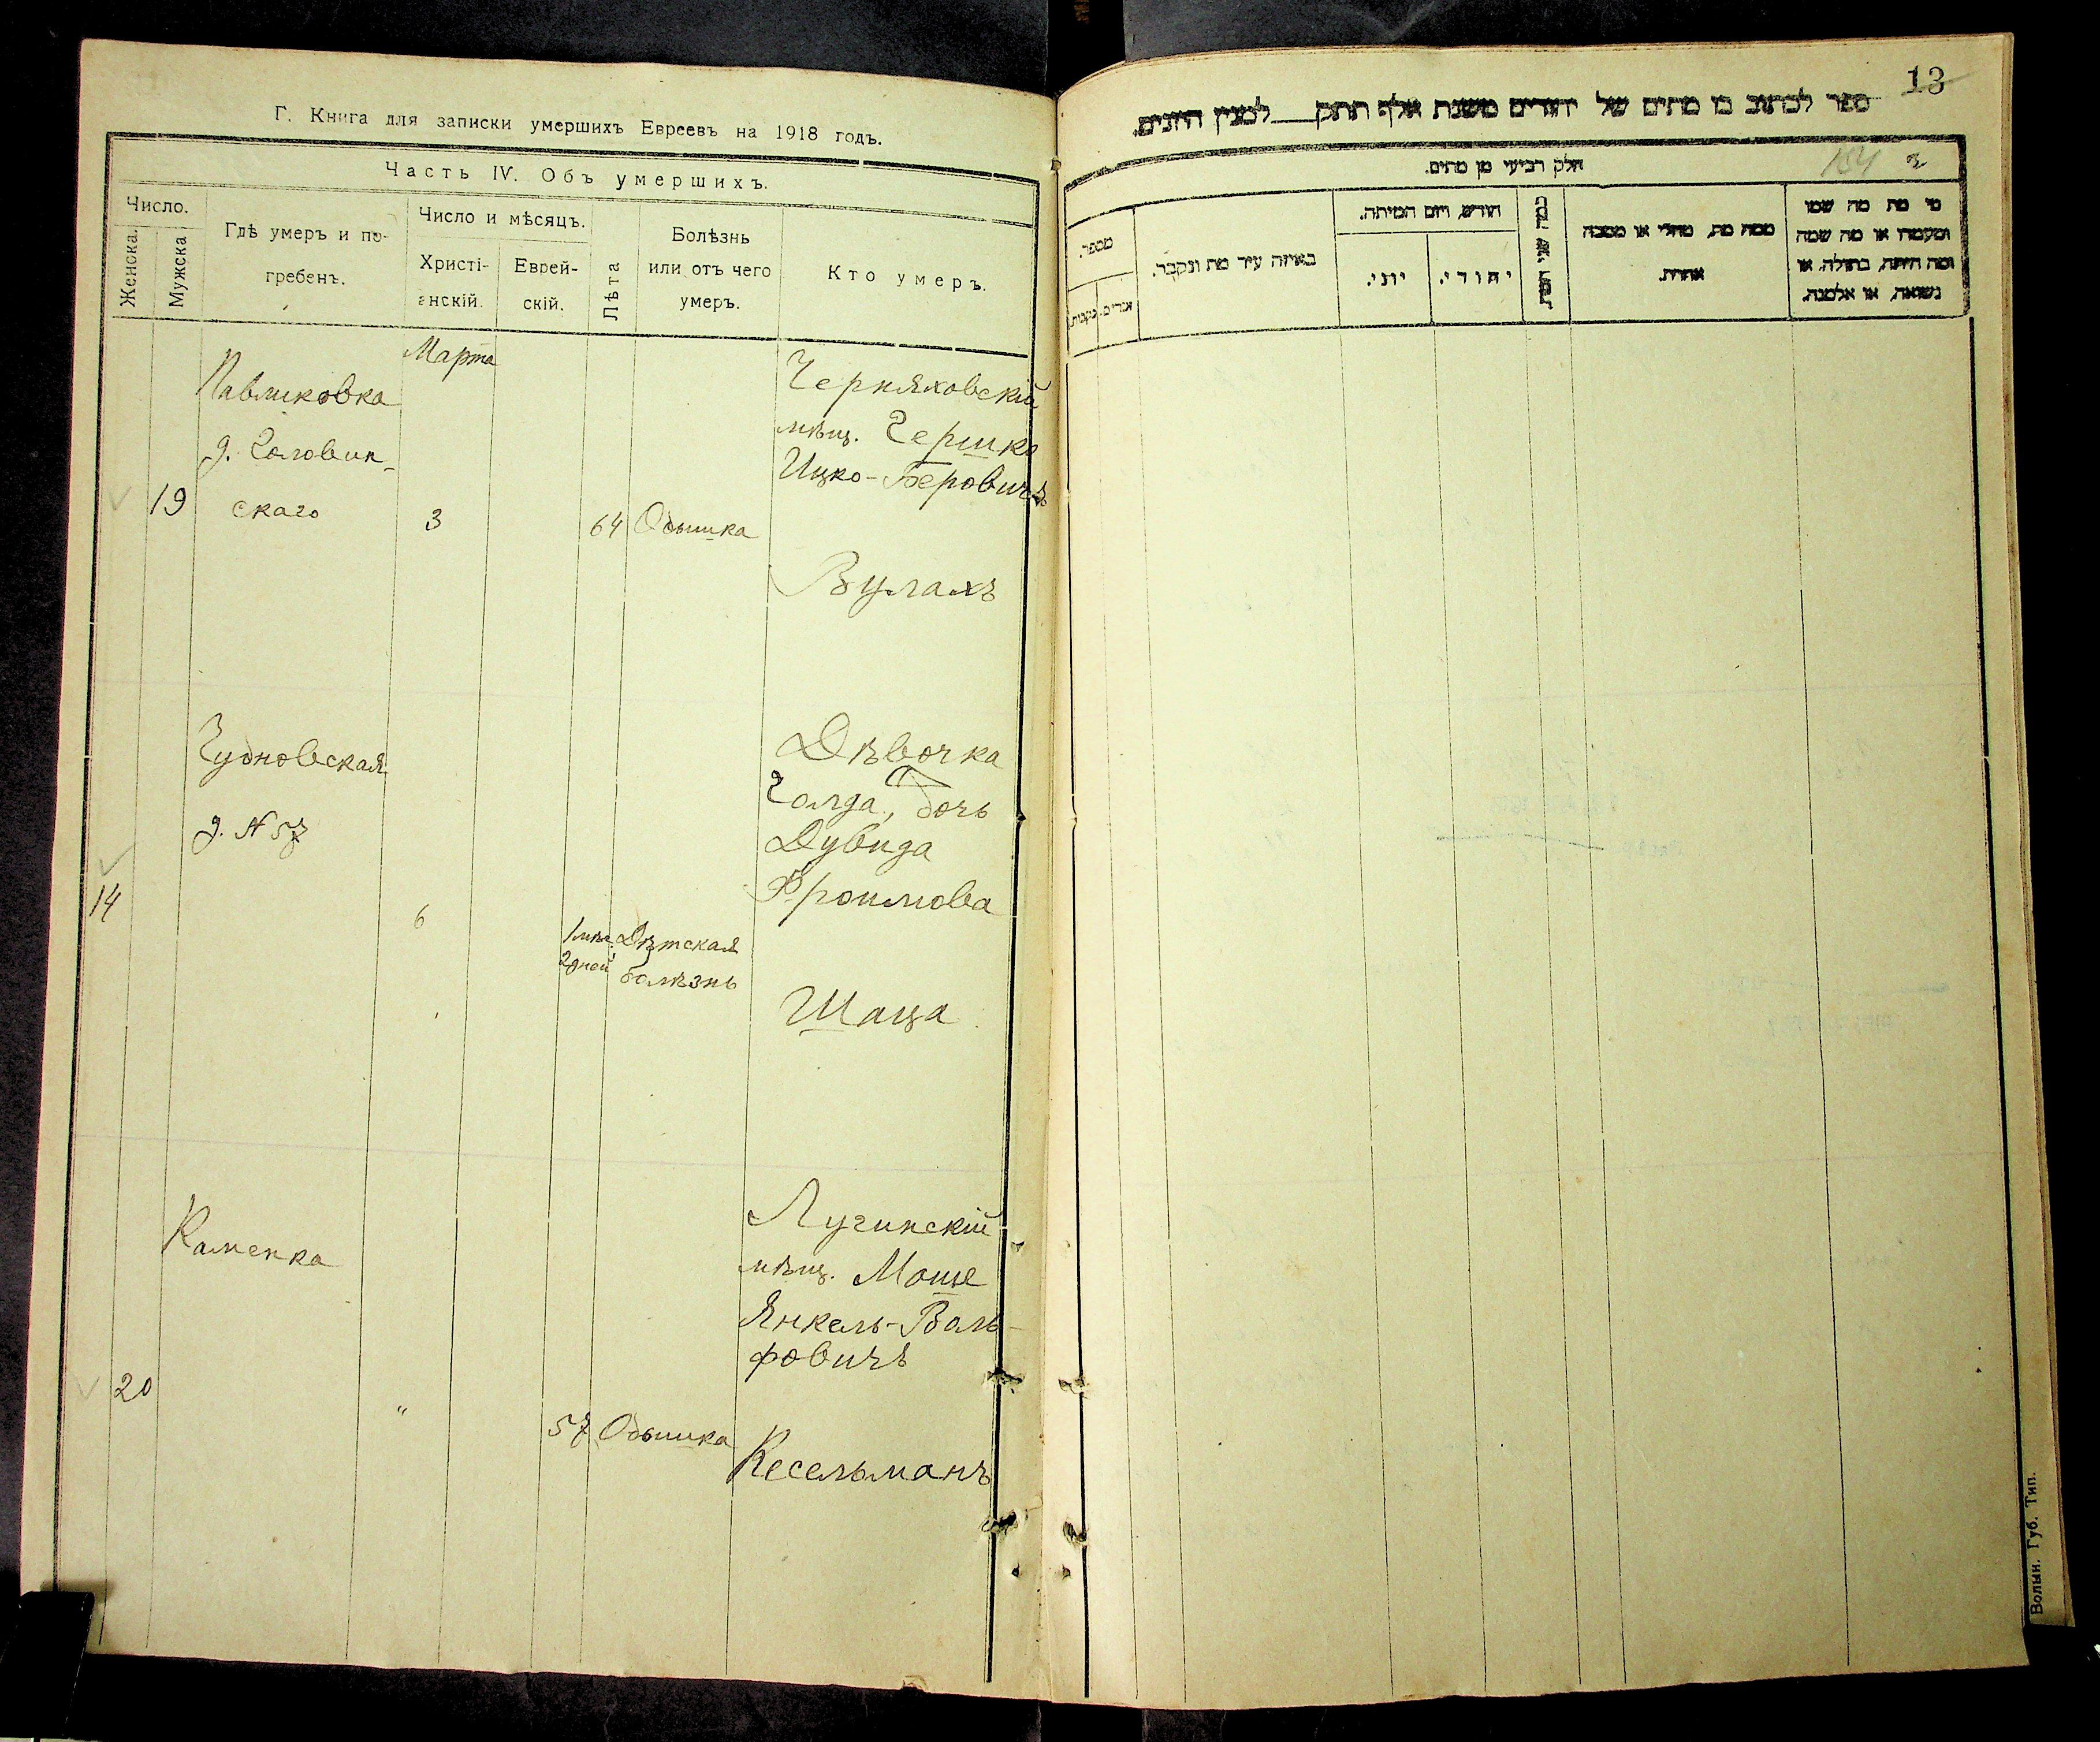 Г. Книга для записки умершихъ Евреевъ на 1918 годъ.
Часть IV. Объ умершихъ.
Число.
Женска.
Мужска
Гдѣ умеръ и по-
гребенъ.
Число и мѣсяцъ.
Христі-
анскій.
Еврей-
скій.
Лѣта
Болѣзнь
или отъ чего
умеръ.
Кто умеръ.
Марта
19
Павликовка
д. Головин-
скаго
3
64
Одышка
Черняховскій
мѣщ. Гершко
Ицко-Беровичъ
Вулахъ
14
Чудновская
д. № 57
6
1 мѣс.
2 дней
Дѣтская
болѣзнь
Дѣвочка
Голда, дочь
Дувида
Фроимова
Шаца
20
Каменка
"
57
Одышка
Лугинскій
мѣщ. Моше
Янкель-Воль-
фовичъ
Кесельманъ
13
ספר לכתוב בו מתים של יהודים משנת אלף תתק למנין היונים.
חלק רביעי מן מתים.
184
מספר.
זכרים.
נקבות.
באיזה עיר מת ונקבר.
חודש, ויום המיתה.
יוני.
יהודי.
כמה שני המת
ממה מת, מחלי או מסבה
אחרת.
מי מת מה שמו
ומעמדו או מה שמה
ומה היתה, בתולה, או
נשואה, או אלמנה.
Волын. Губ. Тип.